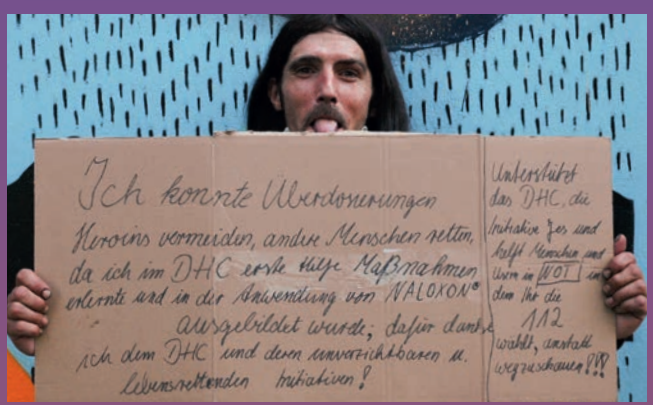 Ich konnte Überdosierungen
Heroins vermeiden, andere Menschen retten,
da ich im DHC erste Hilfe Maßnahmen
erlernte und in der Anwendung von NALOXON®
ausgebildet wurde; dafür danke
ich dem DHC und deren unverzichtbaren u.
lebensrettenden Initiativen!
Unterstützt
das DHC, die
Initiative Yes und
helft Menschen und
Usern in NOT in
dem Ihr die
112
wählt, anstatt
wegzuschauen!!!